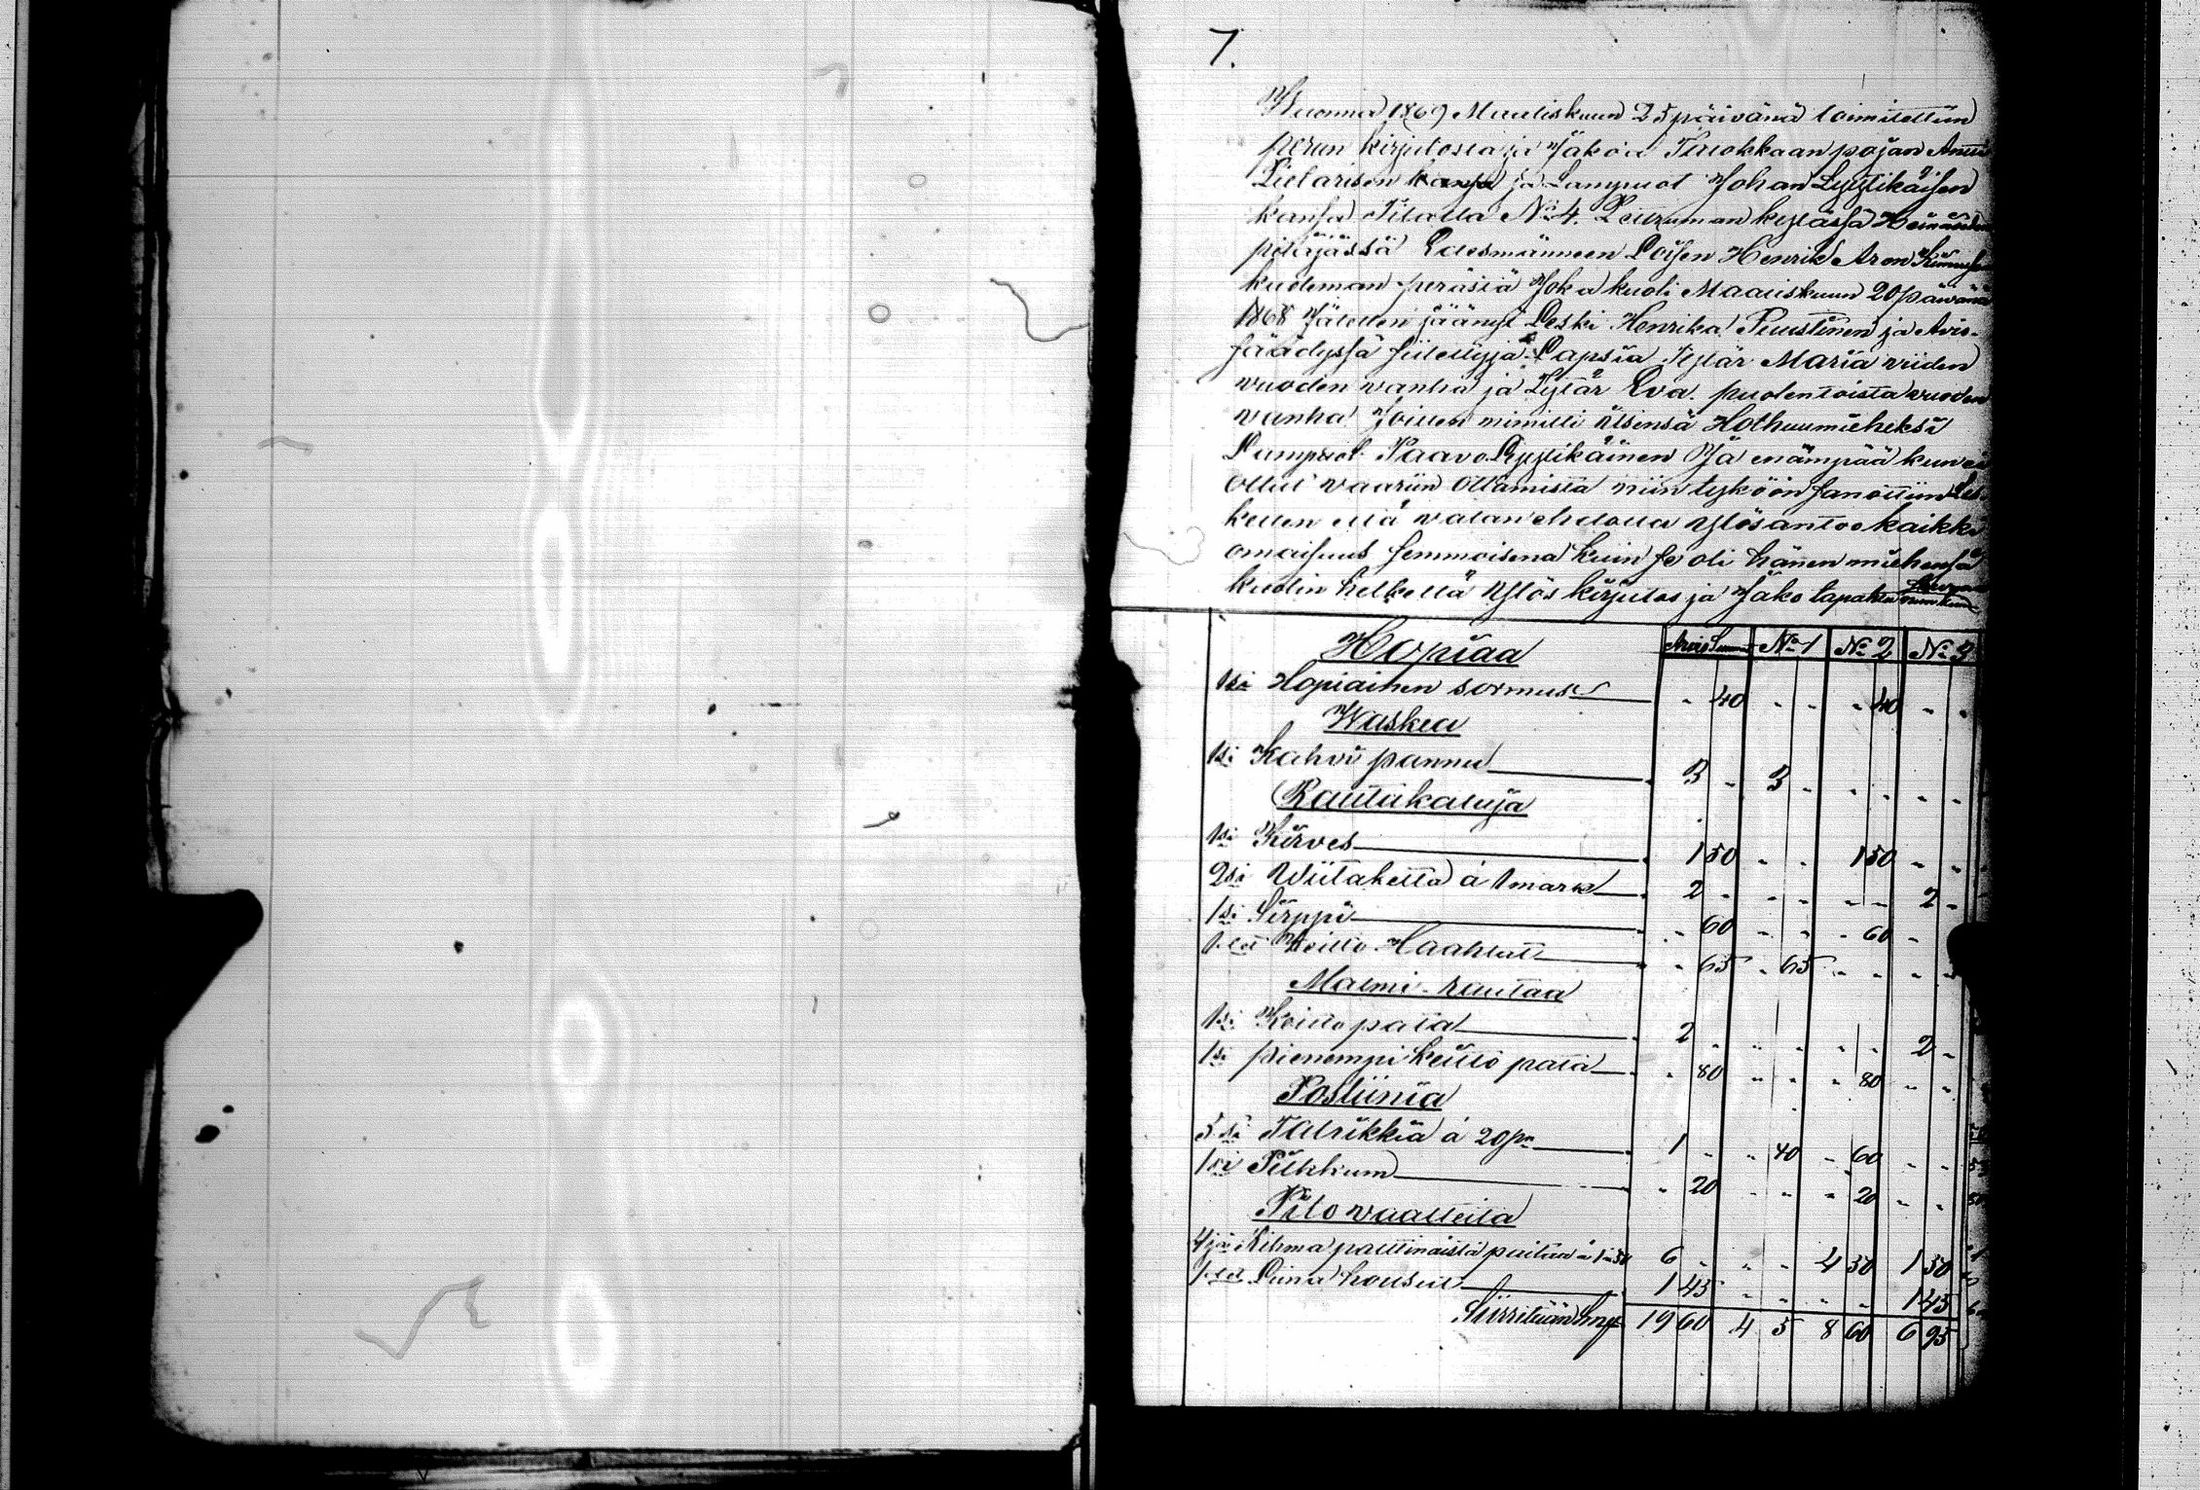 7.
Wuonna 1869 Maaliskuun 25 päivänä toimitettiin
perun kirjutosta ja Jakoa Tiaokkaan pojan Antti
Pietarisen kansa ja Lampuot Johan Lyytikäisen
kansa Tilalla No 4. kylässä
pitäjässä Edesmänneen Loisen Henrik Aron
kuoleman peräsiä Joka kuoli Maaliskuun 20 päivänä
1868 Jälellen jäänyt Leski Henrika Puustinen ja Avio-
säädyssä siitettyjä Lapsia Tytär Maria viiden
vuoden vanha ja Tytär Eva puolentoista vuoden
vanha Joitten nimitti itsensä Holhuumieheksi
Lampuot Paavo Lyytikäinen Ja enämpää kun ei
ollut vaariin ottamista niin tyköön sanottiin Les-
kellen että valan ehdolla Ylösantoo kaikki
omaisuus semmoisena kuin se oli hänen miehensä
kuolin hetkellä Ylös kirjutus ja Jako tapahtu
Hopiaa Arvio Summa No 1 No 2 No 3
1si Hopiainen sormus - 40 - - - 40 - -
Waskea
1si Kahvi pannu 3 - 3 - - - - -
Rautakaluja
1si Kirves 1 50 - - 1 50 - -
2si Wiitaketta á 1 mark 2 - - - - - 2 -
1si Sirppi - 60 - - - 60 -
1det Keitto Haahlat - 65 - 65 - - - -
Malmi-rautaa
1si Keitto pata 2 - - - - - 2 -
1si pienempi keitto pata - 80 - - - 80 - -
Posliinia
5si Talrikkia á 20 pn 1 - - 40 - 60 - -
1si Pilkkum - 20 - - - 20 - -
Pito vaatteita
palttinaista paitaa á 1 50 6 - - - 4 50 1 50
1det Liina housut 1 45 - - - - 1 45
Siirretään 19 60 4 5 8 60 6 95